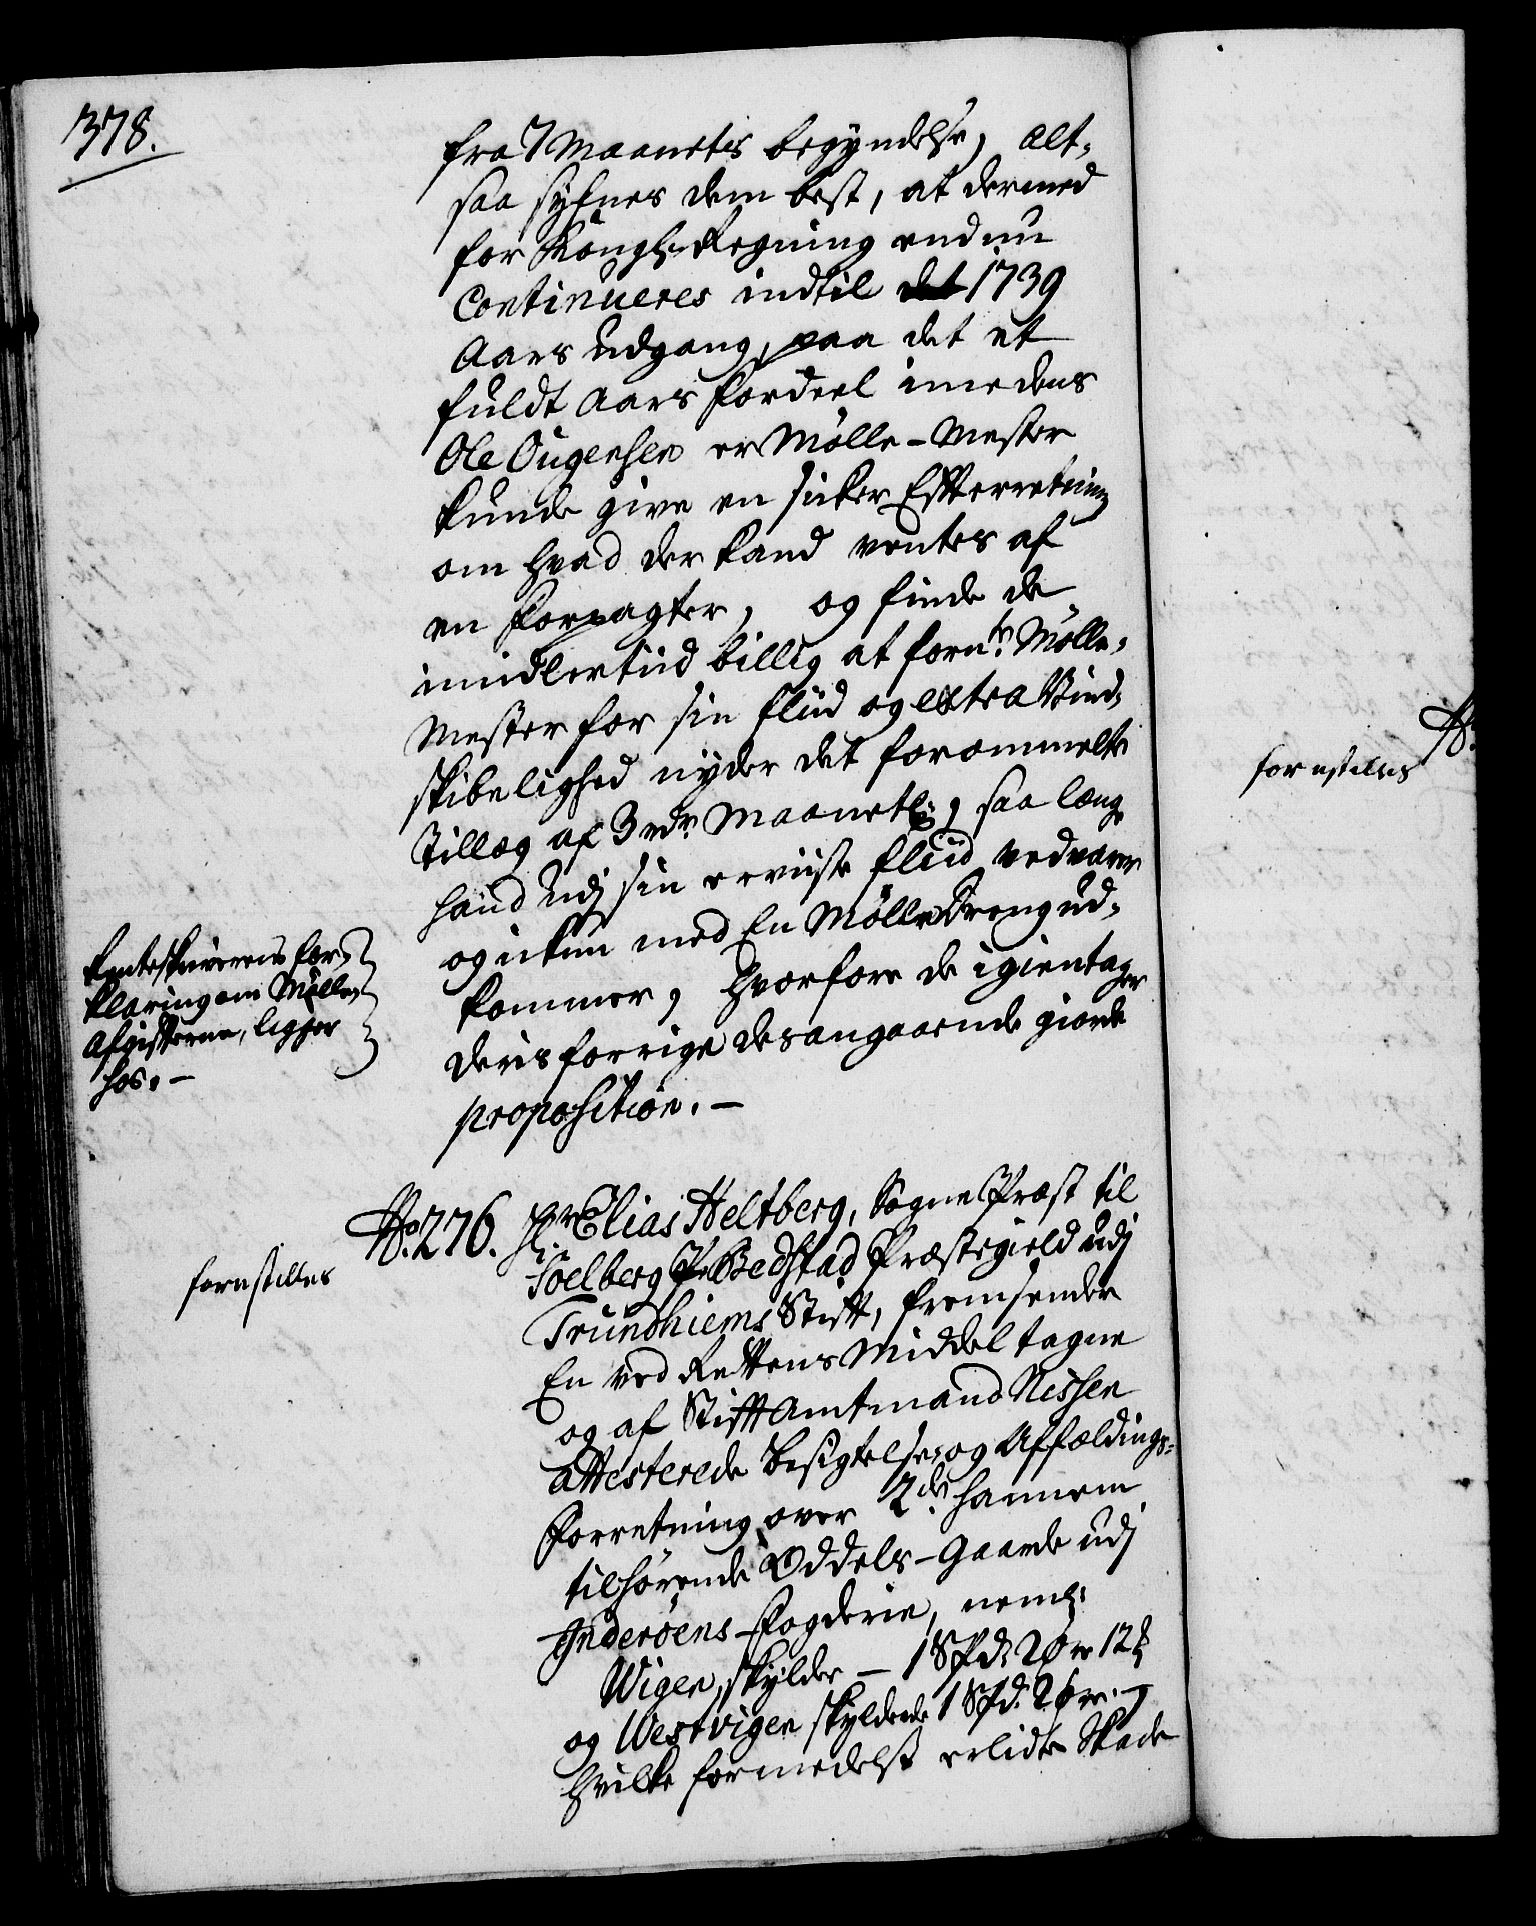 378.
fra 7 Maanetis begyndelse, alt-
saa syhnes dem best, at dermed
for Kongl: Regning endnu
Continueres indtil det 1739
Aars udgang, paa det et
fuldt Aars fordeel imedens
Ole Ougensen er Mølle-Mester
kunde give en sicker Effterretning
om hvad der kand ventes af
en forpagter, og finde de
imidlertiid billig at forn:te Mølle-
Mester for sin fliid og extra Vind-
skibelighed nyder det forommelte
Tillæg af 3 rdr Maanetl:, saa længe
hand udj sin erviiste fliid vedvarer
og ickun med En Mølle Dreng ud-
kommer, hvorfore de igientager
deris forrige desangaaende giorde
proposition. -
Renteskriverens for-
klaring om Mølle-
Afgifterne, ligger
hos. -
No: 276. Hr: Elias Heltberg, Sogne Præst til
forestilles
Soelberg Bedstad Præstegield udj
Trundhiems Stift, fremsender
En ved Rettens Middel tagne
og af Stifft Amtmand Nissen
attesterede Besigtelse- og Affældings-
Forretning over 2de hannem
tilhørende Oddels-Gaarde udj
Inderøens Fogderie, neml:
Wigen, skylder - 1 Spd: 2 øre 12 
og Westvigen skyldende 1 Spd: 2 øre. -
hvilke formedelst erlidte Skade
forestilles
No: